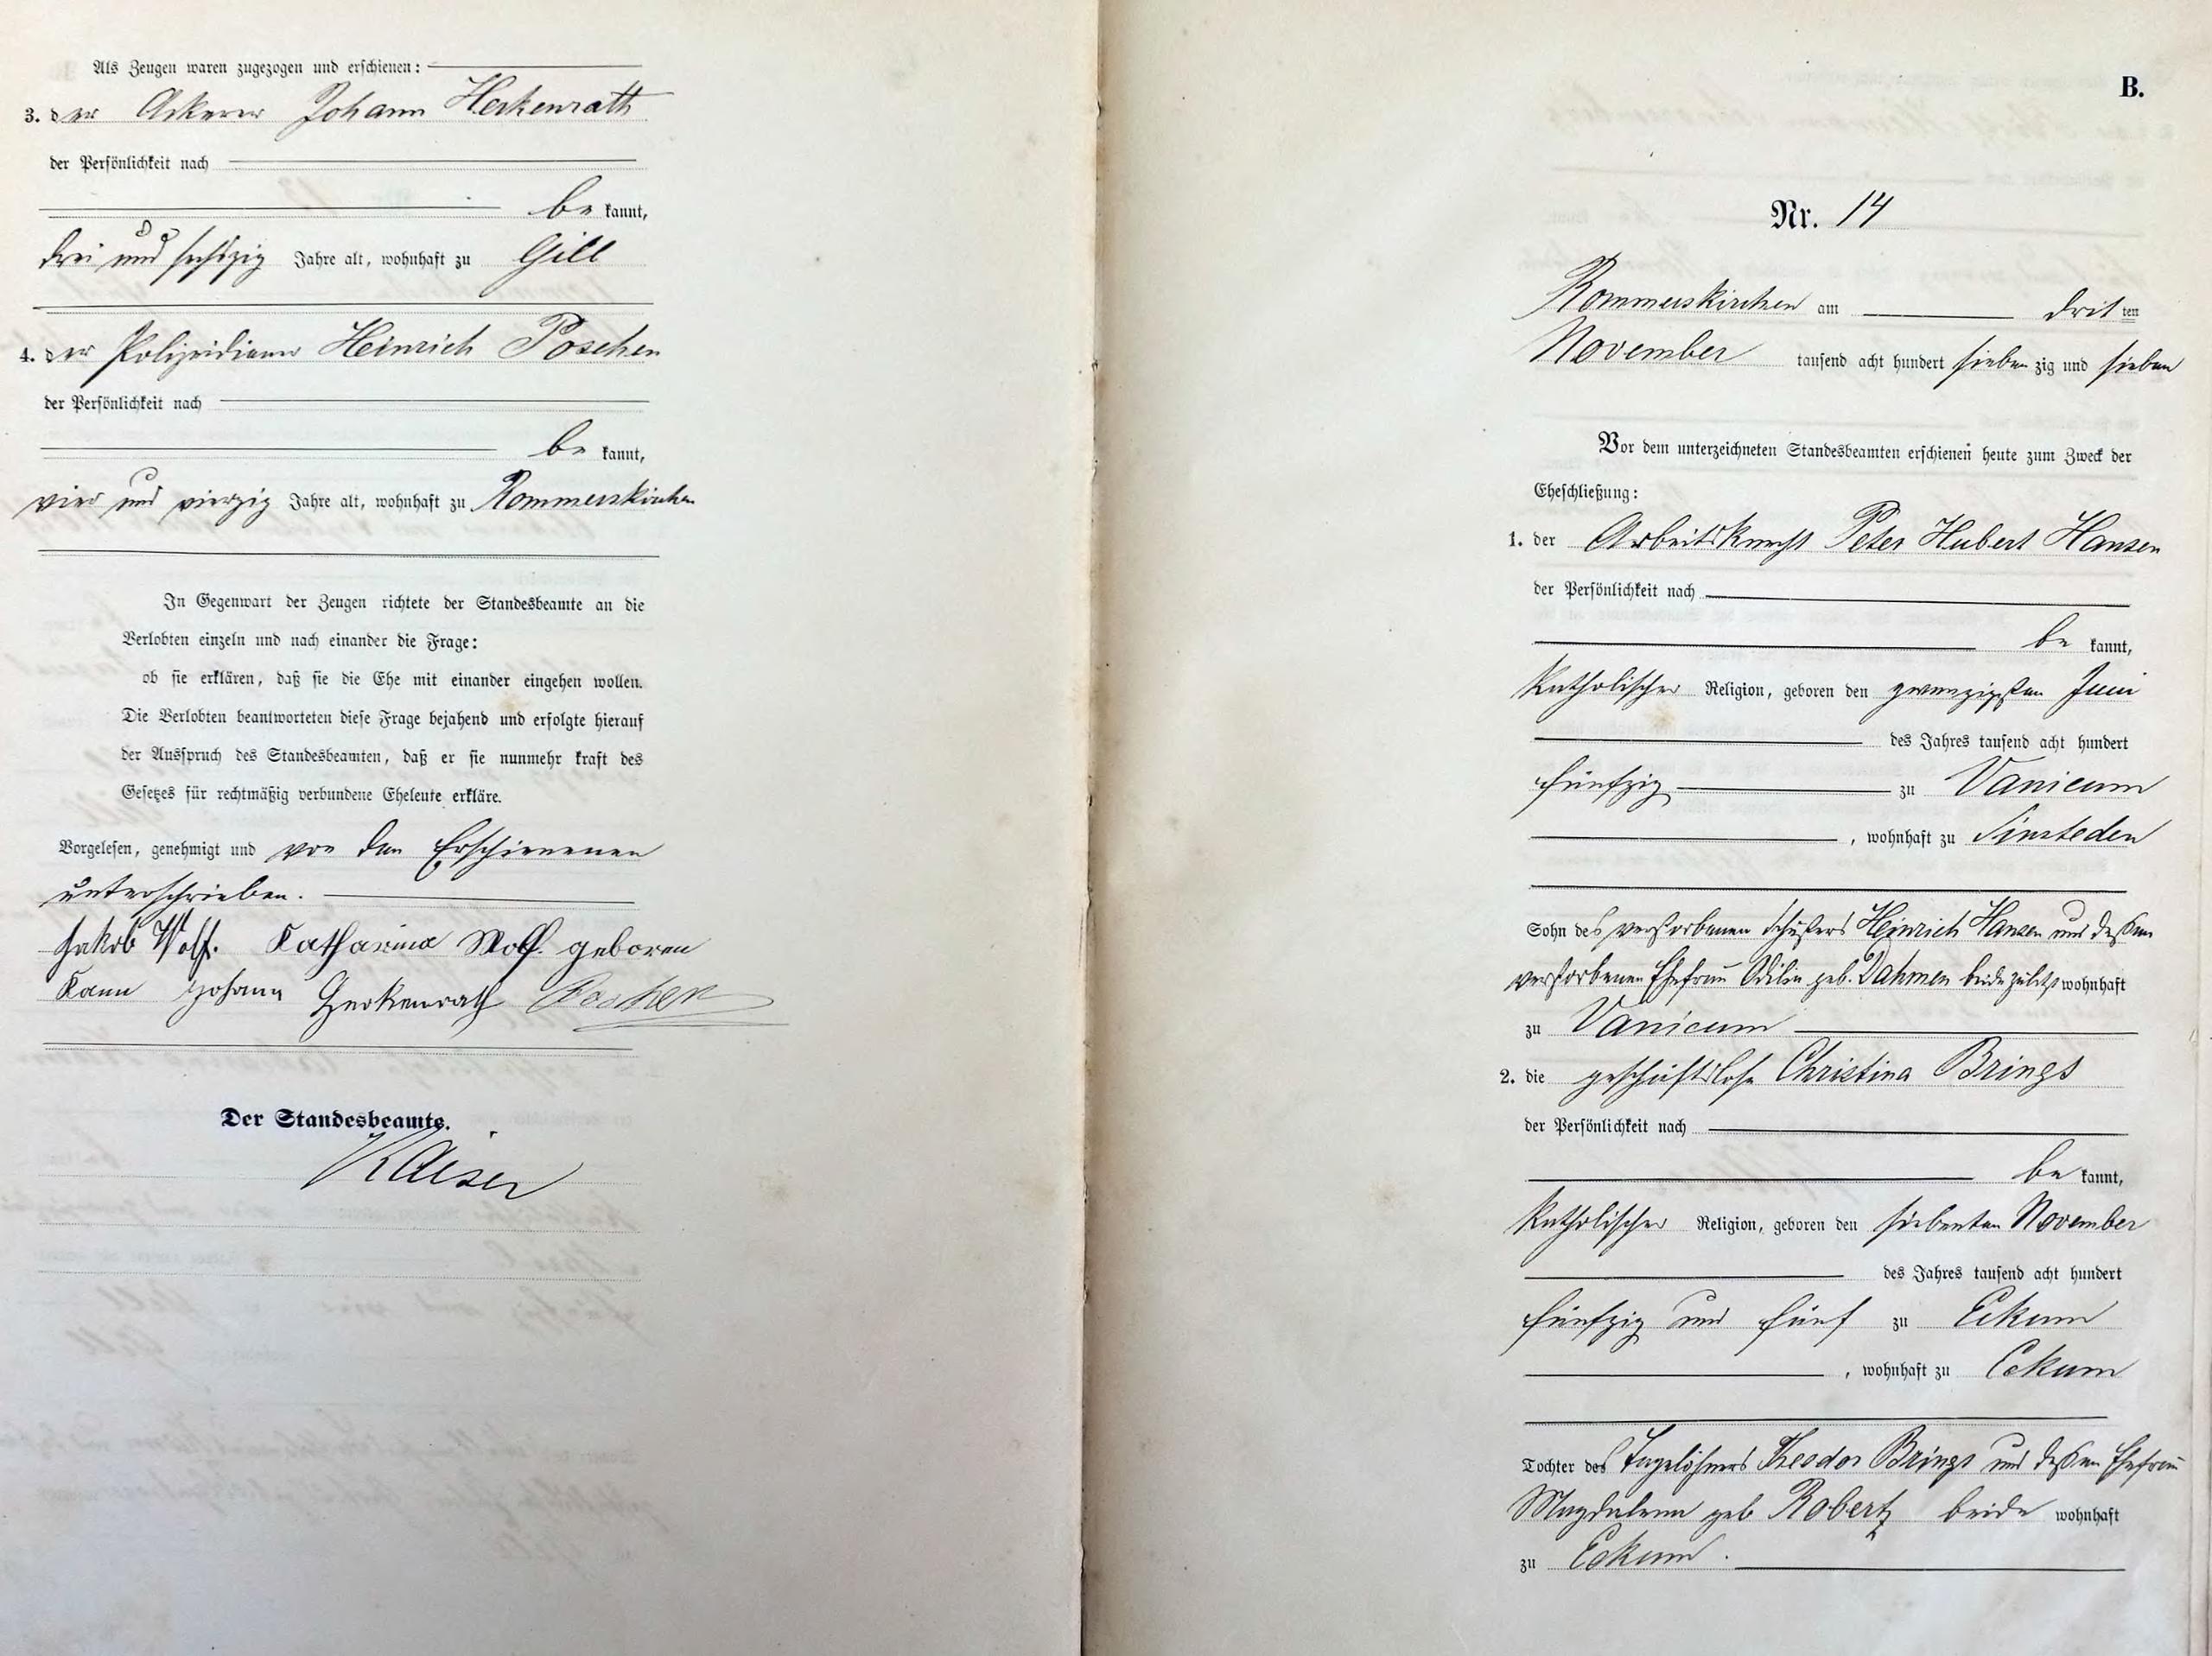 Als Zeugen waren zugezogen und erschienen:
3. der Ackerer Johann Herkenrath
der Persönlichkeit nach
be kannt,
drei und sechszig Jahre alt, wohnhaft zu Gill
4. der Polizeidiener Heinrich Poschen
der Persönlichkeit nach
be kannt,
vier und vierzig Jahre alt, wohnhaft zu Rommerskirchen
In Gegenwart der Zeugen richtete der Standesbeamte an die
Verlobten einzeln und nach einander die Frage:
ob sie erklären, daß sie die Ehe mit einander eingehen wollen.
Die Verlobten beantworteten diese Frage bejahend und erfolgte hierauf
der Ausspruch des Standesbeamten, daß er sie nunmehr kraft des
Gesetzes für rechtmäßig verbundene Eheleute erkläre.
Vorgelesen, genehmigt und von den Erschienenen
unterschrieben.
Jakob Wolf. Katharina Wolf. geboren
Kann Johann Herkenrath Poschen
Der Standesbeamte.
Kaiser
B.
Nr. 14
Rommerskirchen am dritten
November tausend acht hundert siebenzig und sieben
Vor dem unterzeichneten Standesbeamten erschienen heute zum Zweck der
Eheschließung:
1. der Arbeitsknecht Peter Hubert Hansen
der Persönlichkeit nach
be kannt,
katholischer Religion, geboren den zwanzigsten Juni
des Jahres tausend acht hundert
fünfzig zu Vanicum
, wohnhaft zu Sinsteden
Sohn des verstorbenen Schusters Heinrich Hansen und dessen
verstorbenen Ehefrau Odilia geb. Dahmen beide zuletzt wohnhaft
zu Vanicum
2. die geschäftslose Christina Brings
der Persönlichkeit nach
be kannt,
katholischer Religion, geboren den siebenten November
des Jahres tausend acht hundert
fünfzig und fünf zu Eckum
, wohnhaft zu Eckum
Tochter des Tagelöhners Theodor Brings und dessen Ehefrau
Magdalena geb Robertz beide wohnhaft
zu Eckum.